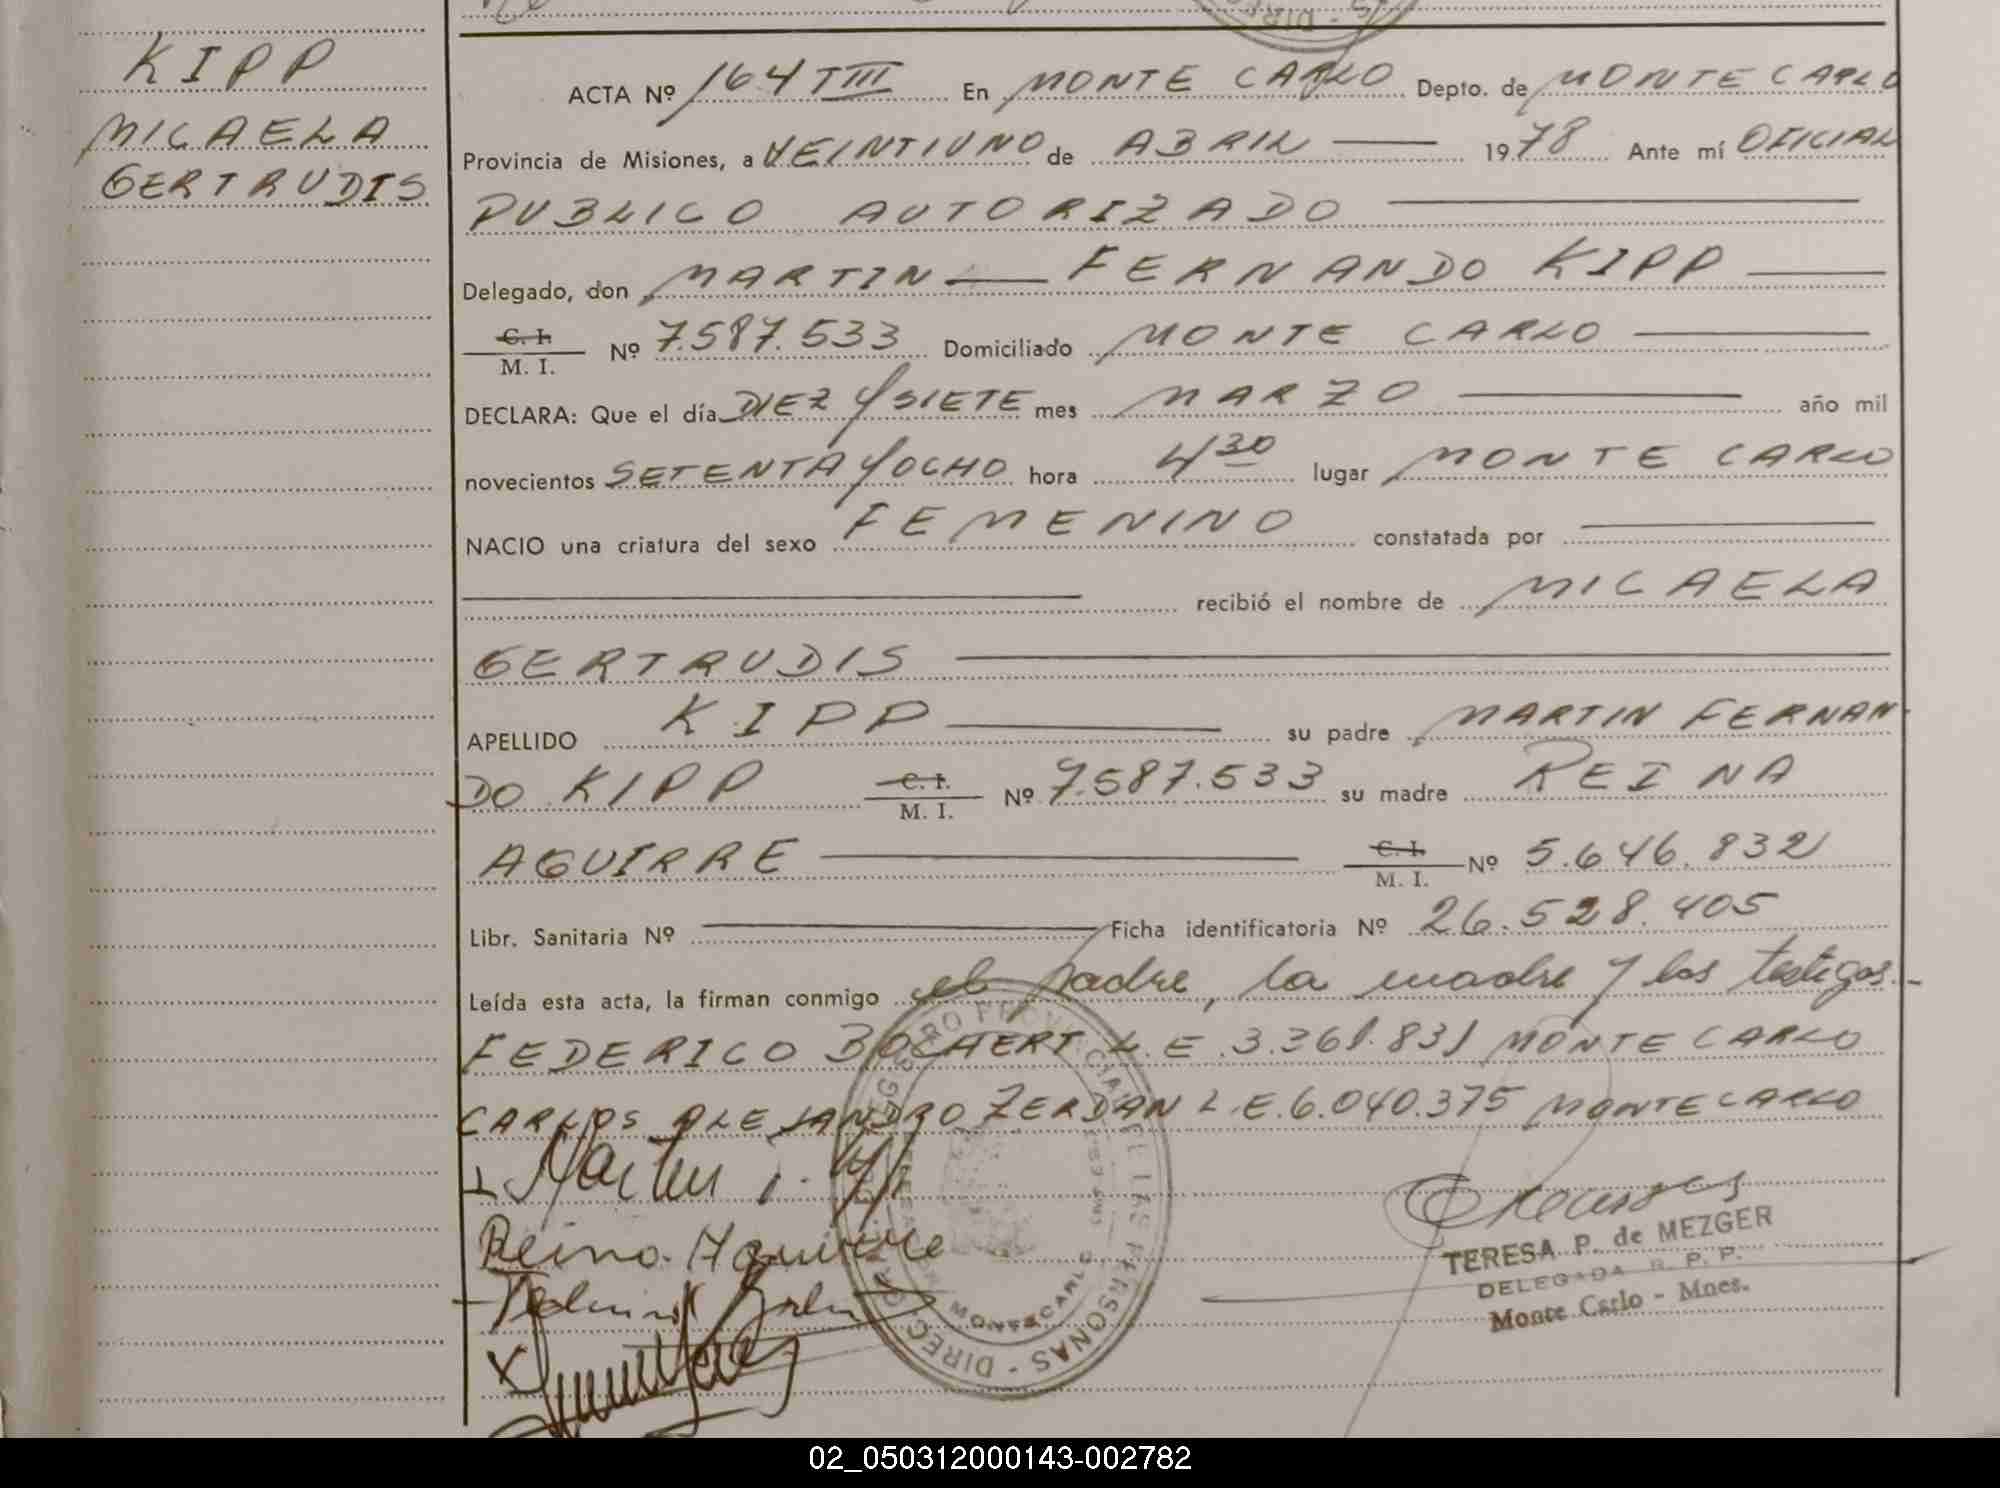 KIPP
MICAELA
GERTRUDIS
ACTA Nº 164 TIII En MONTE CARLO Depto. de MONTE CARLO
Provincia de Misiones, a VEINTIUNO de ABRIL 1978 Ante mí OFICIAL
PUBLICO AUTORIZADO
Delegado, don MARTIN FERNANDO KIPP
C. I.
M. I. Nº 7.587.533 Domiciliado MONTE CARLO
DECLARA: Que el día DIEZ Y SIETE mes MARZO año mil
novecientos SETENTA Y OCHO hora 4 30 lugar MONTE CARLO
NACIO una criatura del sexo FEMENINO constatada por
recibió el nombre de MICAELA
GERTRUDIS
APELLIDO KIPP su padre MARTIN FERNAN-
DO KIPP C. I. M. I. Nº 7.587.533 su madre REINA
AGUIRRE C. I. M. I. Nº 5.646.832
Libr. Sanitaria Nº Ficha identificatoria Nº 26.528.405
Leída esta acta, la firman conmigo el padre, la madre y los testigos.-
FEDERICO BOCAERT L.E. 3.361.831 MONTE CARLO
CARLOS ALEJANDRO ZERDAN L.E. 6.040.375 MONTE CARLO
Reina Aguirre
TERESA P. de MEZGER
DELEGADA R. P. P.
Monte Carlo - Mnes.
MONTECARLO
02_050312000143-002782